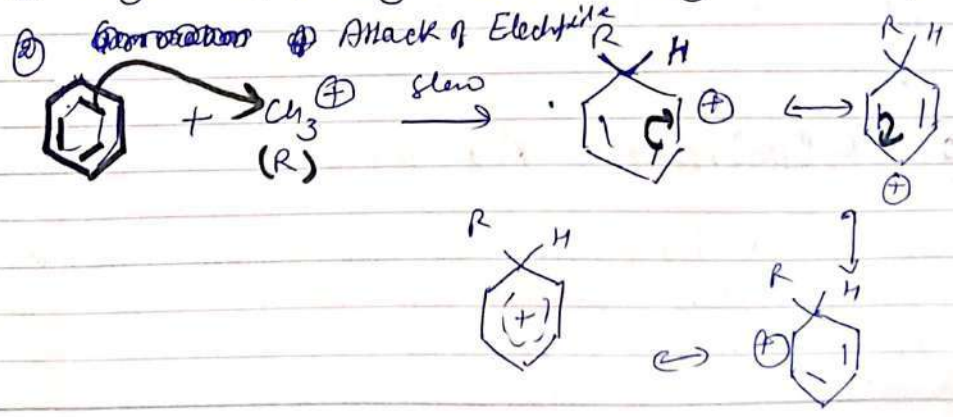 ② Attack of Electrophile
R H
+ CH₃⊕ slow ⊕ ⟷ R H
(R)
⊕
R H
(+) ⟷ ⊕ R H